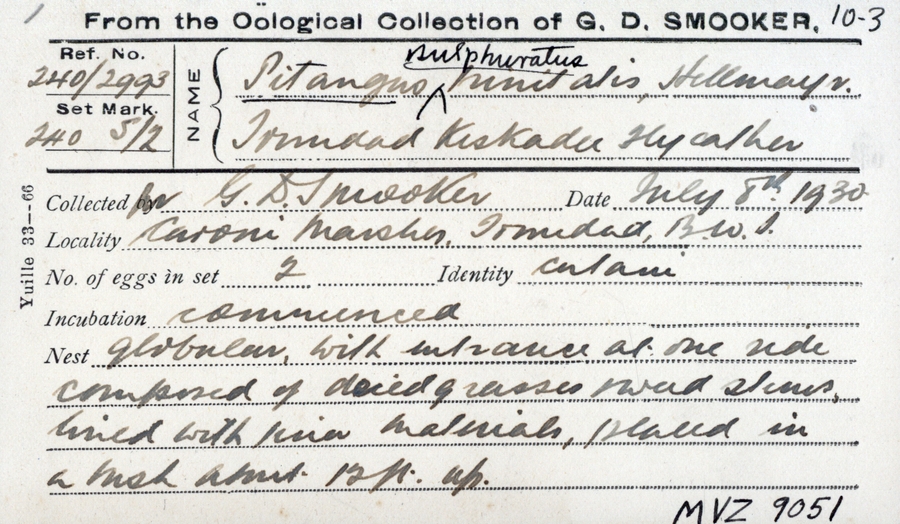 From the Oölogical Collection of G. D. SMOOKER. 10-3
Ref. No.
240/2993
Set Mark.
240 5/2
NAME
sulphuratus
Pitangus trinitatis, Hellmayr.
Trinidad Keskadee Flycatcher
Collected for G. D. Smooker Date July 8th 1930
Locality Caroni Marshes, Trinidad, B.W.I.
No. of eggs in set 2 Identity certain
Incubation commenced
Nest globular, with entrance at one side
composed of dried grasses weed stems,
lined with finer materials, placed in
a bush about 12 ft. up.
Yuille 33—66
MVZ 9051